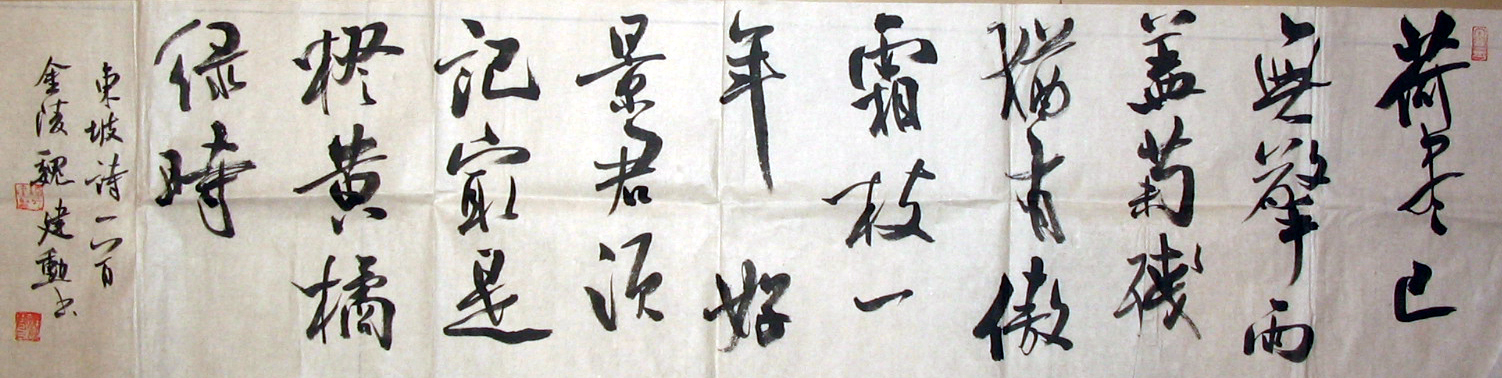 荷尽已
無擎雨
盖菊残
猶有傲
霜枝一
年好
景君须
記最是
橙黄橘
绿時
東坡诗一首
金陵魏建動书